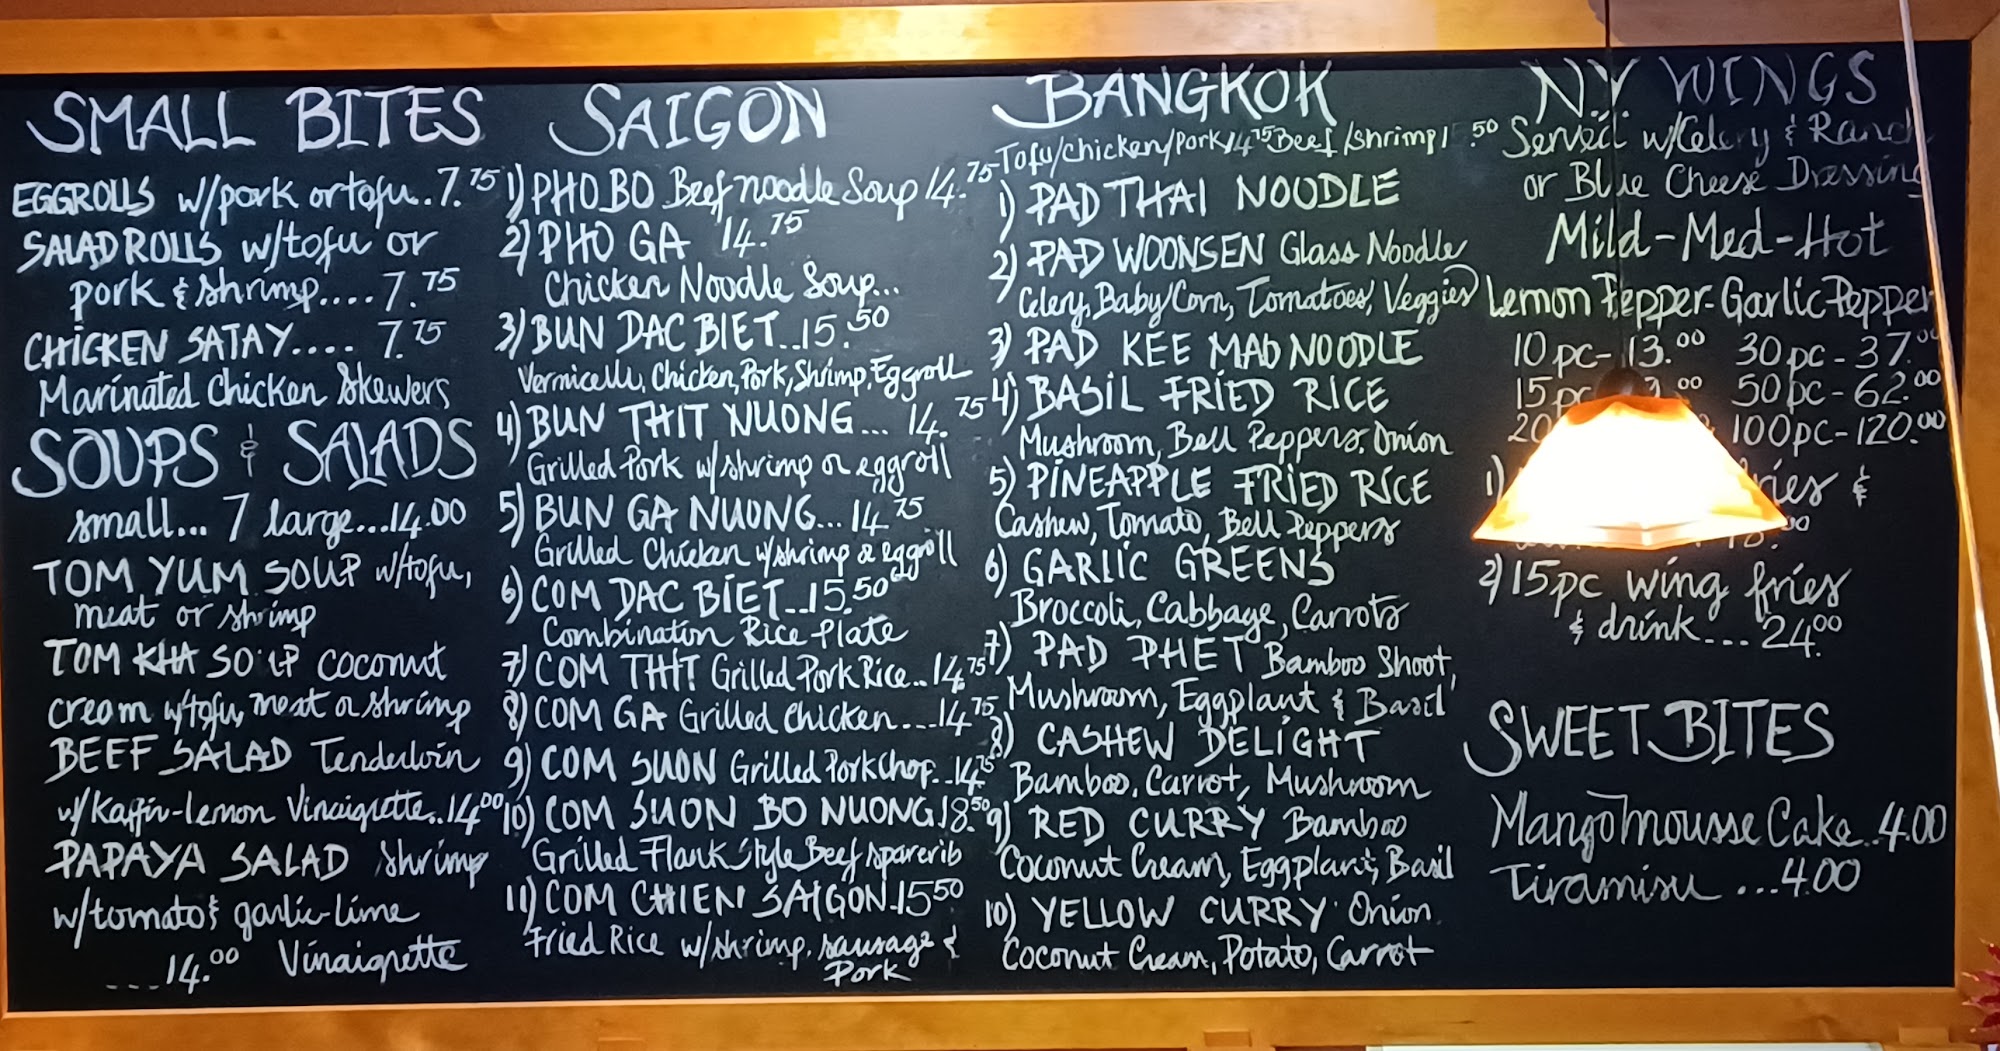 SMALL BITES
EGGROLLS w/pork or tofu..7.75
SALAD ROLLS w/tofu or
pork & shrimp....7.75
CHICKEN SATAY.... 7.75
Marinated Chicken Skewers
SOUPS & SALADS
small... 7 large...14.00
TOM YUM SOUP w/tofu,
meat or shrimp
TOM KHA SOUP coconut
cream w/tofu, meat or shrimp
BEEF SALAD Tenderloin
w/Kaffir-lemon Vinaigrette..14.00
PAPAYA SALAD shrimp
w/tomato & garlic-lime
...14.00 Vinaigrette
SAIGON
1) PHO BO Beef noodle Soup 14.75
2) PHO GA 14.75
Chicken Noodle Soup...
3) BUN DAC BIET..15.50
Vermicelli, Chicken, Pork, Shrimp, Eggroll
4) BUN THIT NUONG... 14.75
Grilled Pork w/shrimp or eggroll
5) BUN GA NUONG...14.75
Grilled Chicken w/shrimp or eggroll
6) COM DAC BIET..15.50
Combination Rice Plate
7) COM THIT Grilled Pork Rice..14.75
8) COM GA Grilled Chicken...14.75
9) COM SUON Grilled Porkchop..14.75
10) COM SUON BO NUONG.18.50
Grilled Flank Style Beef sparerib
11) COM CHIEN SAIGON.15.50
Fried Rice w/shrimp, sausage &
Pork
BANGKOK
Tofu/chicken/Pork/14.75 Beef/shrimp 1 .50
1) PAD THAI NOODLE
2) PAD WOONSEN Glass Noodle
Celery, Baby Corn, Tomatoes, Veggies
3) PAD KEE MAO NOODLE
4) BASIL FRIED RICE
Mushroom, Bell Peppers, Onion
5) PINEAPPLE FRIED RICE
Cashew, Tomato, Bell Peppers
6) GARLIC GREENS
Broccoli, Cabbage, Carrots
7) PAD PHET Bamboo Shoot,
Mushroom, Eggplant & Basil
8) CASHEW DELIGHT
Bamboo, Carrot, Mushroom
9) RED CURRY Bamboo
Coconut Cream, Eggplant, Basil
10) YELLOW CURRY Onion
Coconut Cream, Potato, Carrot
N.Y. WINGS
Served w/Celery & Ranch
or Blue Cheese Dressing
Mild-Med-Hot
Lemon Pepper-Garlic Pepper
10 pc-13.00 30 pc-37.00
15 pc 50 pc-62.00
20 100 pc-120.00
1) &
2) 15 pc wing fries
& drink... 24.00
SWEET BITES
Mango mousse Cake..4.00
Tiramisu ...4.00